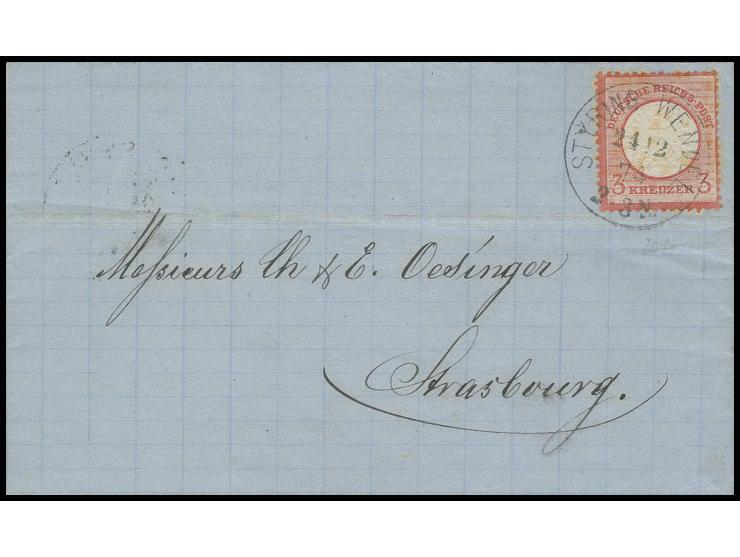 DEUTSCHE REICHS-POST
3 KREUZER 3
STYRING WENDEL
24 12
2-3 N.
Messieurs Ch & E. Oesinger
Strasbourg.